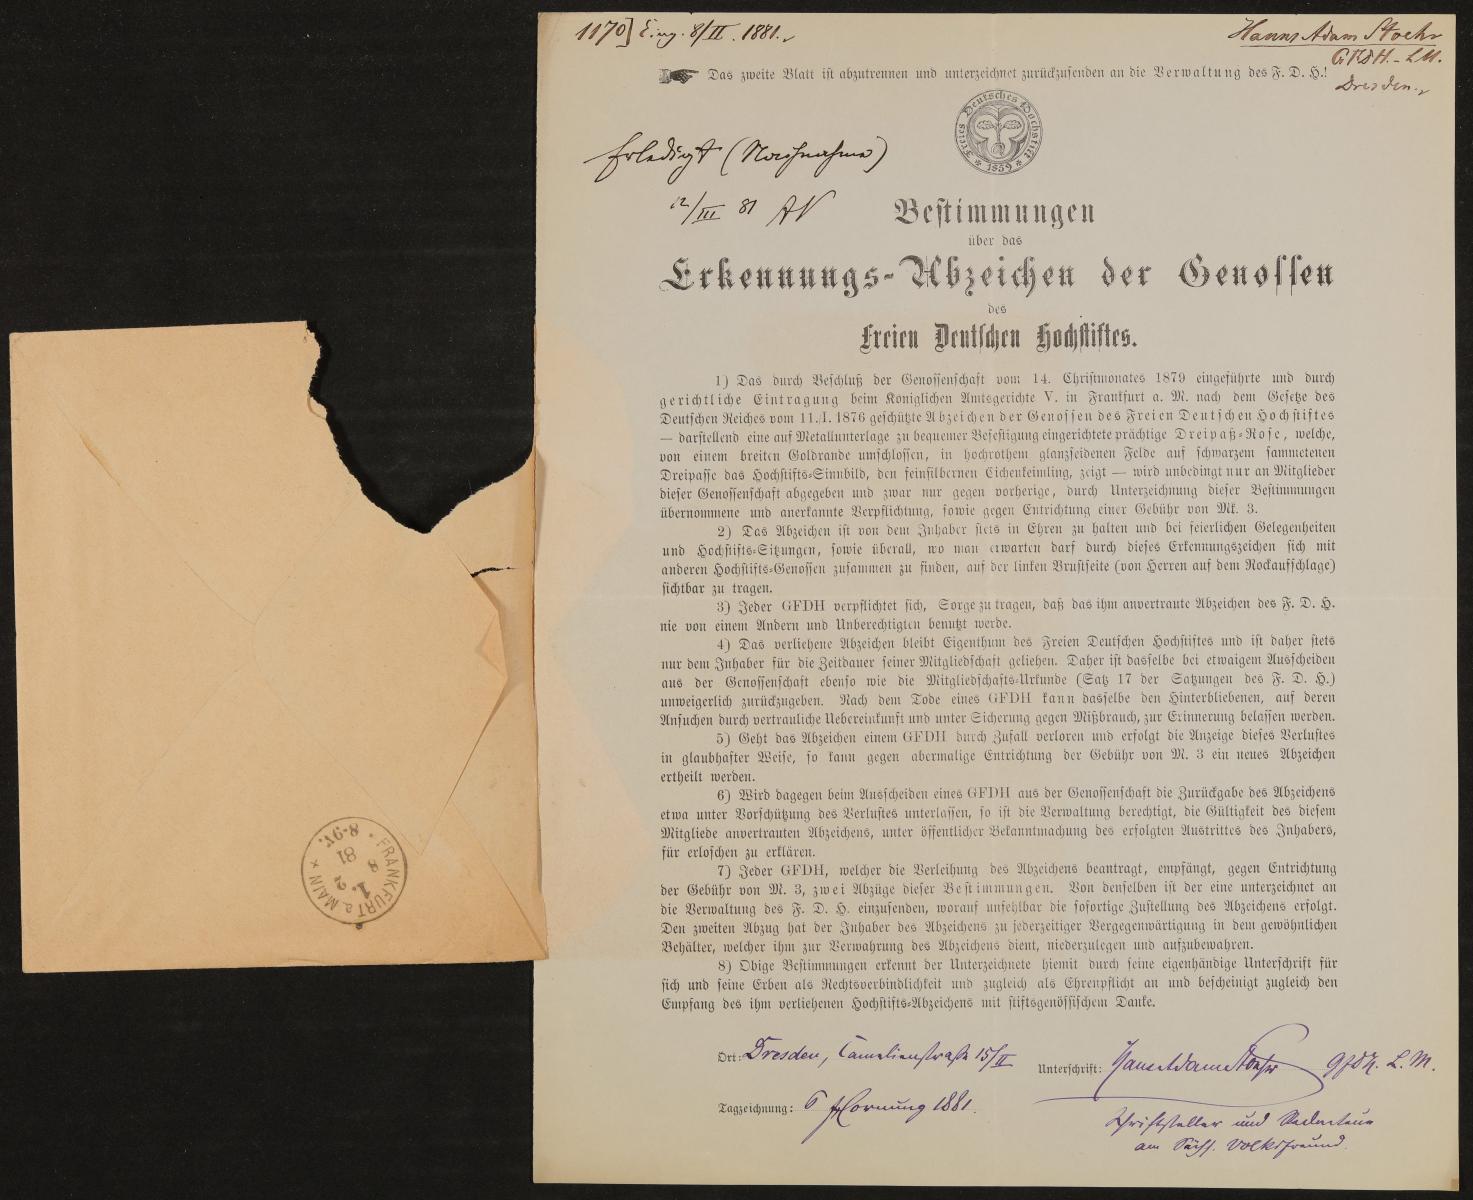 1170] Eing. 8/II. 1881.
Hanns Adam Stoehr
GFDH. - LM.
Dresden.
Das zweite Blatt ist abzutrennen und unterzeichnet zurückzusenden an die Verwaltung des F. D. H.!
Freies Deutsches Hochstift
* 1859 *
Erledigt (Nachnahme)
12/III 81 AV
Bestimmungen
über das
Erkennungs-Abzeichen der Genossen
des
Freien Deutschen Hochstiftes.
1) Das durch Beschluß der Genossenschaft vom 14. Christmonates 1879 eingeführte und durch
gerichtliche Eintragung beim Königlichen Amtsgerichte V. in Frankfurt a. M. nach dem Gesetze des
Deutschen Reiches vom 11./I. 1876 geschützte Abzeichen der Genossen des Freien Deutschen Hochstiftes
— darstellend eine auf Metallunterlage zu bequemer Befestigung eingerichtete prächtige Dreipaß-Rose, welche,
von einem breiten Goldrande umschlossen, in hochrothem glanzseidenen Felde auf schwarzem sammetenen
Dreipasse das Hochstifts-Sinnbild, den feinsilbernen Eichenkeimling, zeigt — wird unbedingt nur an Mitglieder
dieser Genossenschaft abgegeben und zwar nur gegen vorherige, durch Unterzeichnung dieser Bestimmungen
übernommene und anerkannte Verpflichtung, sowie gegen Entrichtung einer Gebühr von Mk. 3.
2) Das Abzeichen ist von dem Inhaber stets in Ehren zu halten und bei feierlichen Gelegenheiten
und Hochstifts-Sitzungen, sowie überall, wo man erwarten darf durch dieses Erkennungszeichen sich mit
anderen Hochstifts-Genossen zusammen zu finden, auf der linken Brustseite (von Herren auf dem Rockaufschlage)
sichtbar zu tragen.
3) Jeder GFDH verpflichtet sich, Sorge zu tragen, daß das ihm anvertraute Abzeichen des F. D. H.
nie von einem Andern und Unberechtigten benutzt werde.
4) Das verliehene Abzeichen bleibt Eigenthum des Freien Deutschen Hochstiftes und ist daher stets
nur dem Inhaber für die Zeitdauer seiner Mitgliedschaft geliehen. Daher ist dasselbe bei etwaigem Ausscheiden
aus der Genossenschaft ebenso wie die Mitgliedschafts-Urkunde (Satz 17 der Satzungen des F. D. H.)
unweigerlich zurückzugeben. Nach dem Tode eines GFDH kann dasselbe den Hinterbliebenen, auf deren
Ansuchen durch vertrauliche Uebereinkunft und unter Sicherung gegen Mißbrauch, zur Erinnerung belassen werden.
5) Geht das Abzeichen einem GFDH durch Zufall verloren und erfolgt die Anzeige dieses Verlustes
in glaubhafter Weise, so kann gegen abermalige Entrichtung der Gebühr von M. 3 ein neues Abzeichen
ertheilt werden.
6) Wird dagegen beim Ausscheiden eines GFDH aus der Genossenschaft die Zurückgabe des Abzeichens
etwa unter Vorschützung des Verlustes unterlassen, so ist die Verwaltung berechtigt, die Gültigkeit des diesem
Mitgliede anvertrauten Abzeichens, unter öffentlicher Bekanntmachung des erfolgten Austrittes des Inhabers,
für erloschen zu erklären.
7) Jeder GFDH, welcher die Verleihung des Abzeichens beantragt, empfängt, gegen Entrichtung
der Gebühr von M. 3, zwei Abzüge dieser Bestimmungen. Von denselben ist der eine unterzeichnet an
die Verwaltung des F. D. H. einzusenden, worauf unfehlbar die sofortige Zustellung des Abzeichens erfolgt.
Den zweiten Abzug hat der Inhaber des Abzeichens zu jederzeitiger Vergegenwärtigung in dem gewöhnlichen
Behälter, welcher ihm zur Verwahrung des Abzeichens dient, niederzulegen und aufzubewahren.
8) Obige Bestimmungen erkennt der Unterzeichnete hiemit durch seine eigenhändige Unterschrift für
sich und seine Erben als Rechtsverbindlichkeit und zugleich als Ehrenpflicht an und bescheinigt zugleich den
Empfang des ihm verliehenen Hochstifts-Abzeichens mit stiftsgenössischem Danke.
Ort: Dresden, Camelienstraße 15/II
Unterschrift: Hanns Adam Stoehr GFDH. L. M.
Tagzeichnung: 6 Hornung 1881.
Schriftsteller und Redacteur
am Sächs. Volksfreund.
FRANKFURT a. MAIN
1.
8 2
81
8-9V.